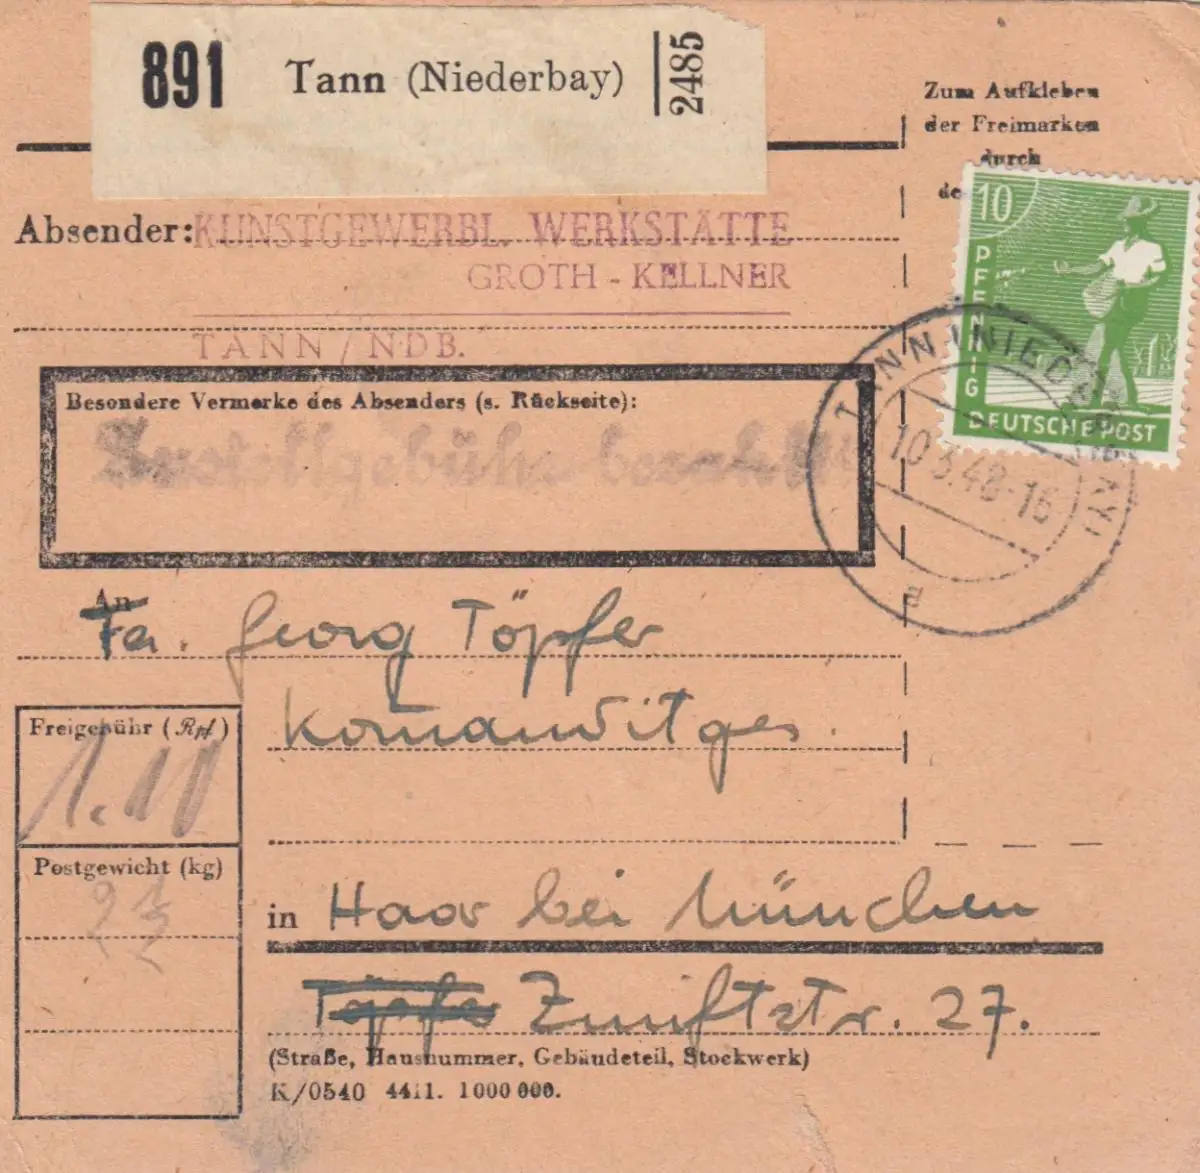 891 Tann (Niederbay) 2485
Zum Aufkleben
der Freimarken
durch
de
10
PFENNIG
DEUTSCHE POST
Absender: KUNSTGEWERBL. WERKSTÄTTE
GROTH - KELLNER
TANN / NDB.
TANN (NIEDERBAY)
10.3.48-16
a
Besondere Vermerke des Absenders (s. Rückseite):
Zustellgebühr bezahlt
An
Fa. Georg Töpfer
Komanditges.
Freigebühr (Rpf)
1.10
Postgewicht (kg)
in Haar bei München
Töpfer Zunftstr. 27.
(Straße, Hausnummer, Gebäudeteil, Stockwerk)
K/0540 4411. 1000 000.